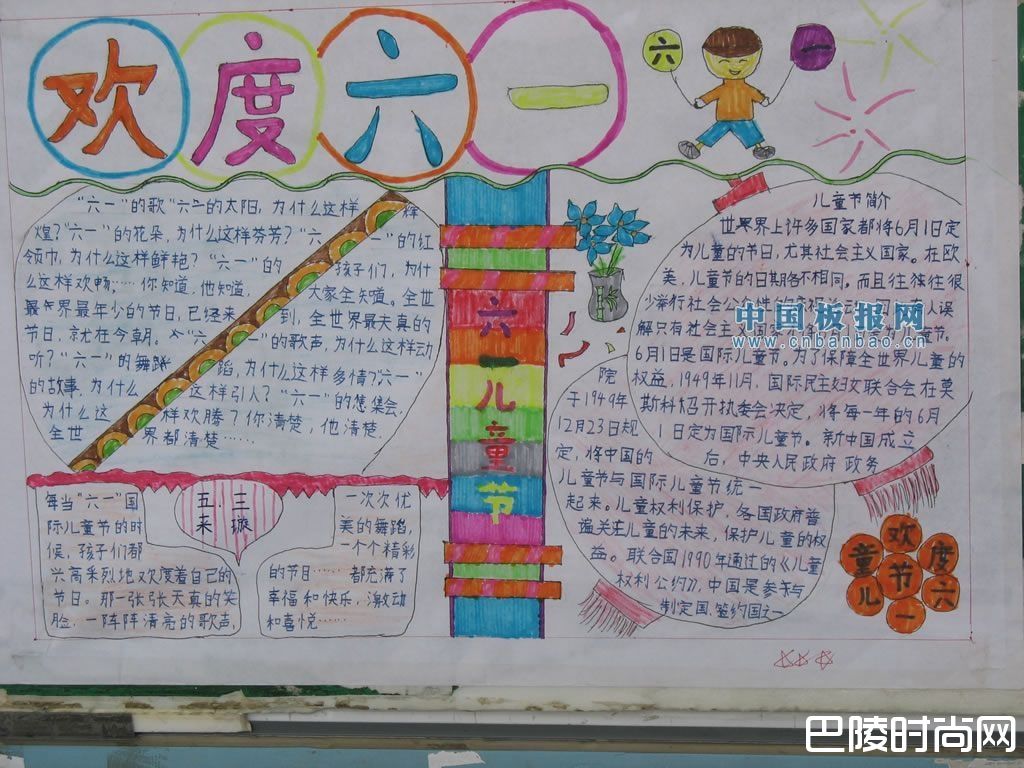 欢度六一
六 一
“六一”的歌“六一的太阳，为什么这样辉
煌？“六一”的花朵，为什么这样芬芳？“六一”的红
领巾，为什么这样鲜艳？“六一”的孩子们，为什
么这样欢畅……你知道，他知道，大家全知道。全世
界最年少的节日，已经来到，全世界最天真的
节日，就在今朝。“六一”的歌声，为什么这样动
听？“六一”的舞蹈，为什么这样多情？“六一”
的故事，为什么这样引人？“六一”的集会，
为什么这样欢腾？你清楚，他清楚，
全世界都清楚……
五.三
璇
每当“六一”国
际儿童节的时
候，孩子们都
兴高采烈地欢度着自己的
节日。那一张张天真的笑
脸，一阵阵清亮的歌声，
一次次优
美的舞蹈，
一个个精彩
的节目……都充满了
幸福和快乐，激动
和喜悦……
六一儿童节
儿童节简介
世界上许多国家都将6月1日定
为儿童的节日，尤其社会主义国家。在欧
美，儿童节的日期各不相同。而且往往很
少举行社会
人误
解只有社会主义国
童节。
6月1日是国际儿童节。为了保障全世界儿童的
权益，1949年11月，国际民主妇女联合会在莫
斯科召开执委会决定，将每一年的6月
1日定为国际儿童节。新中国成立
后，中央人民政府政务
院
于1949年
12月23日规
定，将中国的
儿童节与国际儿童节统一
起来。儿童权利保护，各国政府普
遍关注儿童的未来，保护儿童的权
益。联合国1990年通过的《儿童
权利公约》，中国是参与
制定国签约国之一
欢度六一儿童节
中国板报网
www.cnbanbao.cn
巴陵时尚网